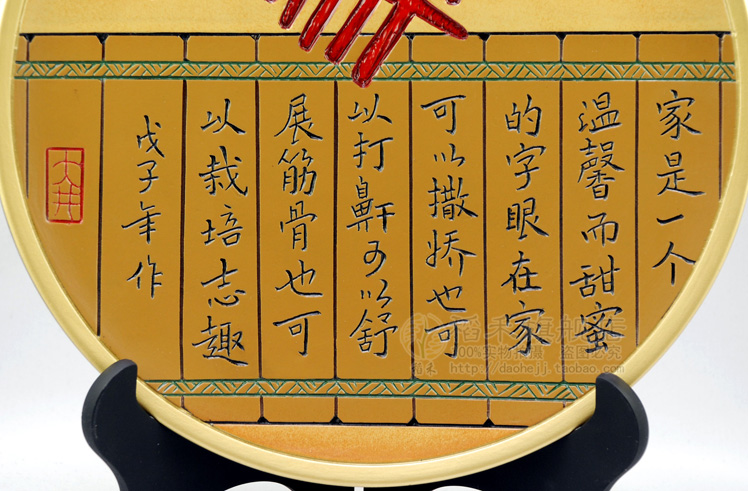 家是一个
温馨而甜蜜
的字眼在家
可以撒娇也可
以打鼾可以舒
展筋骨也可
以栽培志趣
戊子年作
大井
稻禾旗舰店
100%实物拍摄 盗图必究
稻禾 http://daohejj.taobao.com